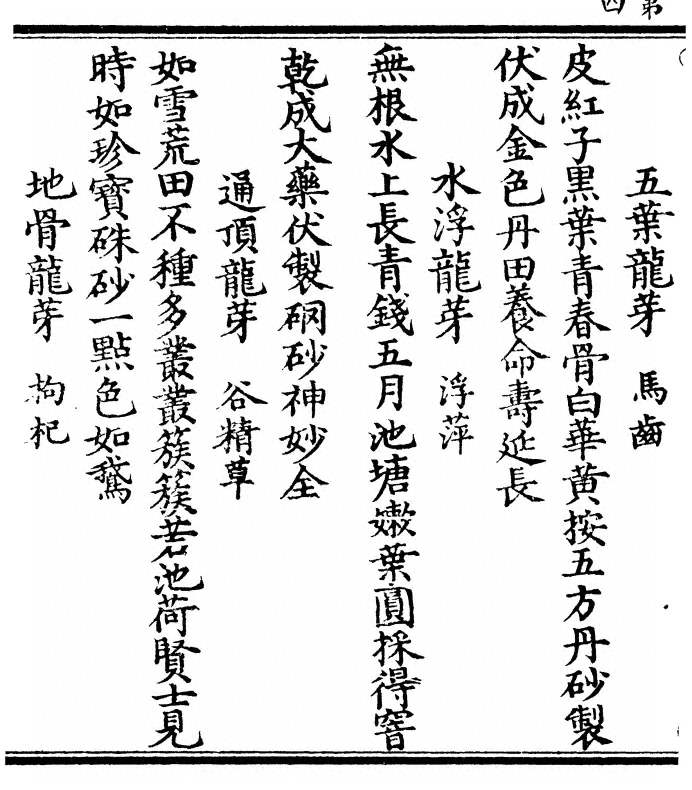 第四
五葉龍芽 馬齒
皮紅子黒葉青春骨白華黄按五方丹砂製
伏成金色丹田養命壽延長
水浮龍芽 浮萍
無根水上長青錢五月池塘嫩葉圓採得窨
乾成大藥伏製硇砂神妙全
通頂龍芽 谷精草
如雪荒田不種多叢叢簇簇若池荷賢士見
時如珍寶硃砂一點色如鵝
地骨龍芽 枸杞